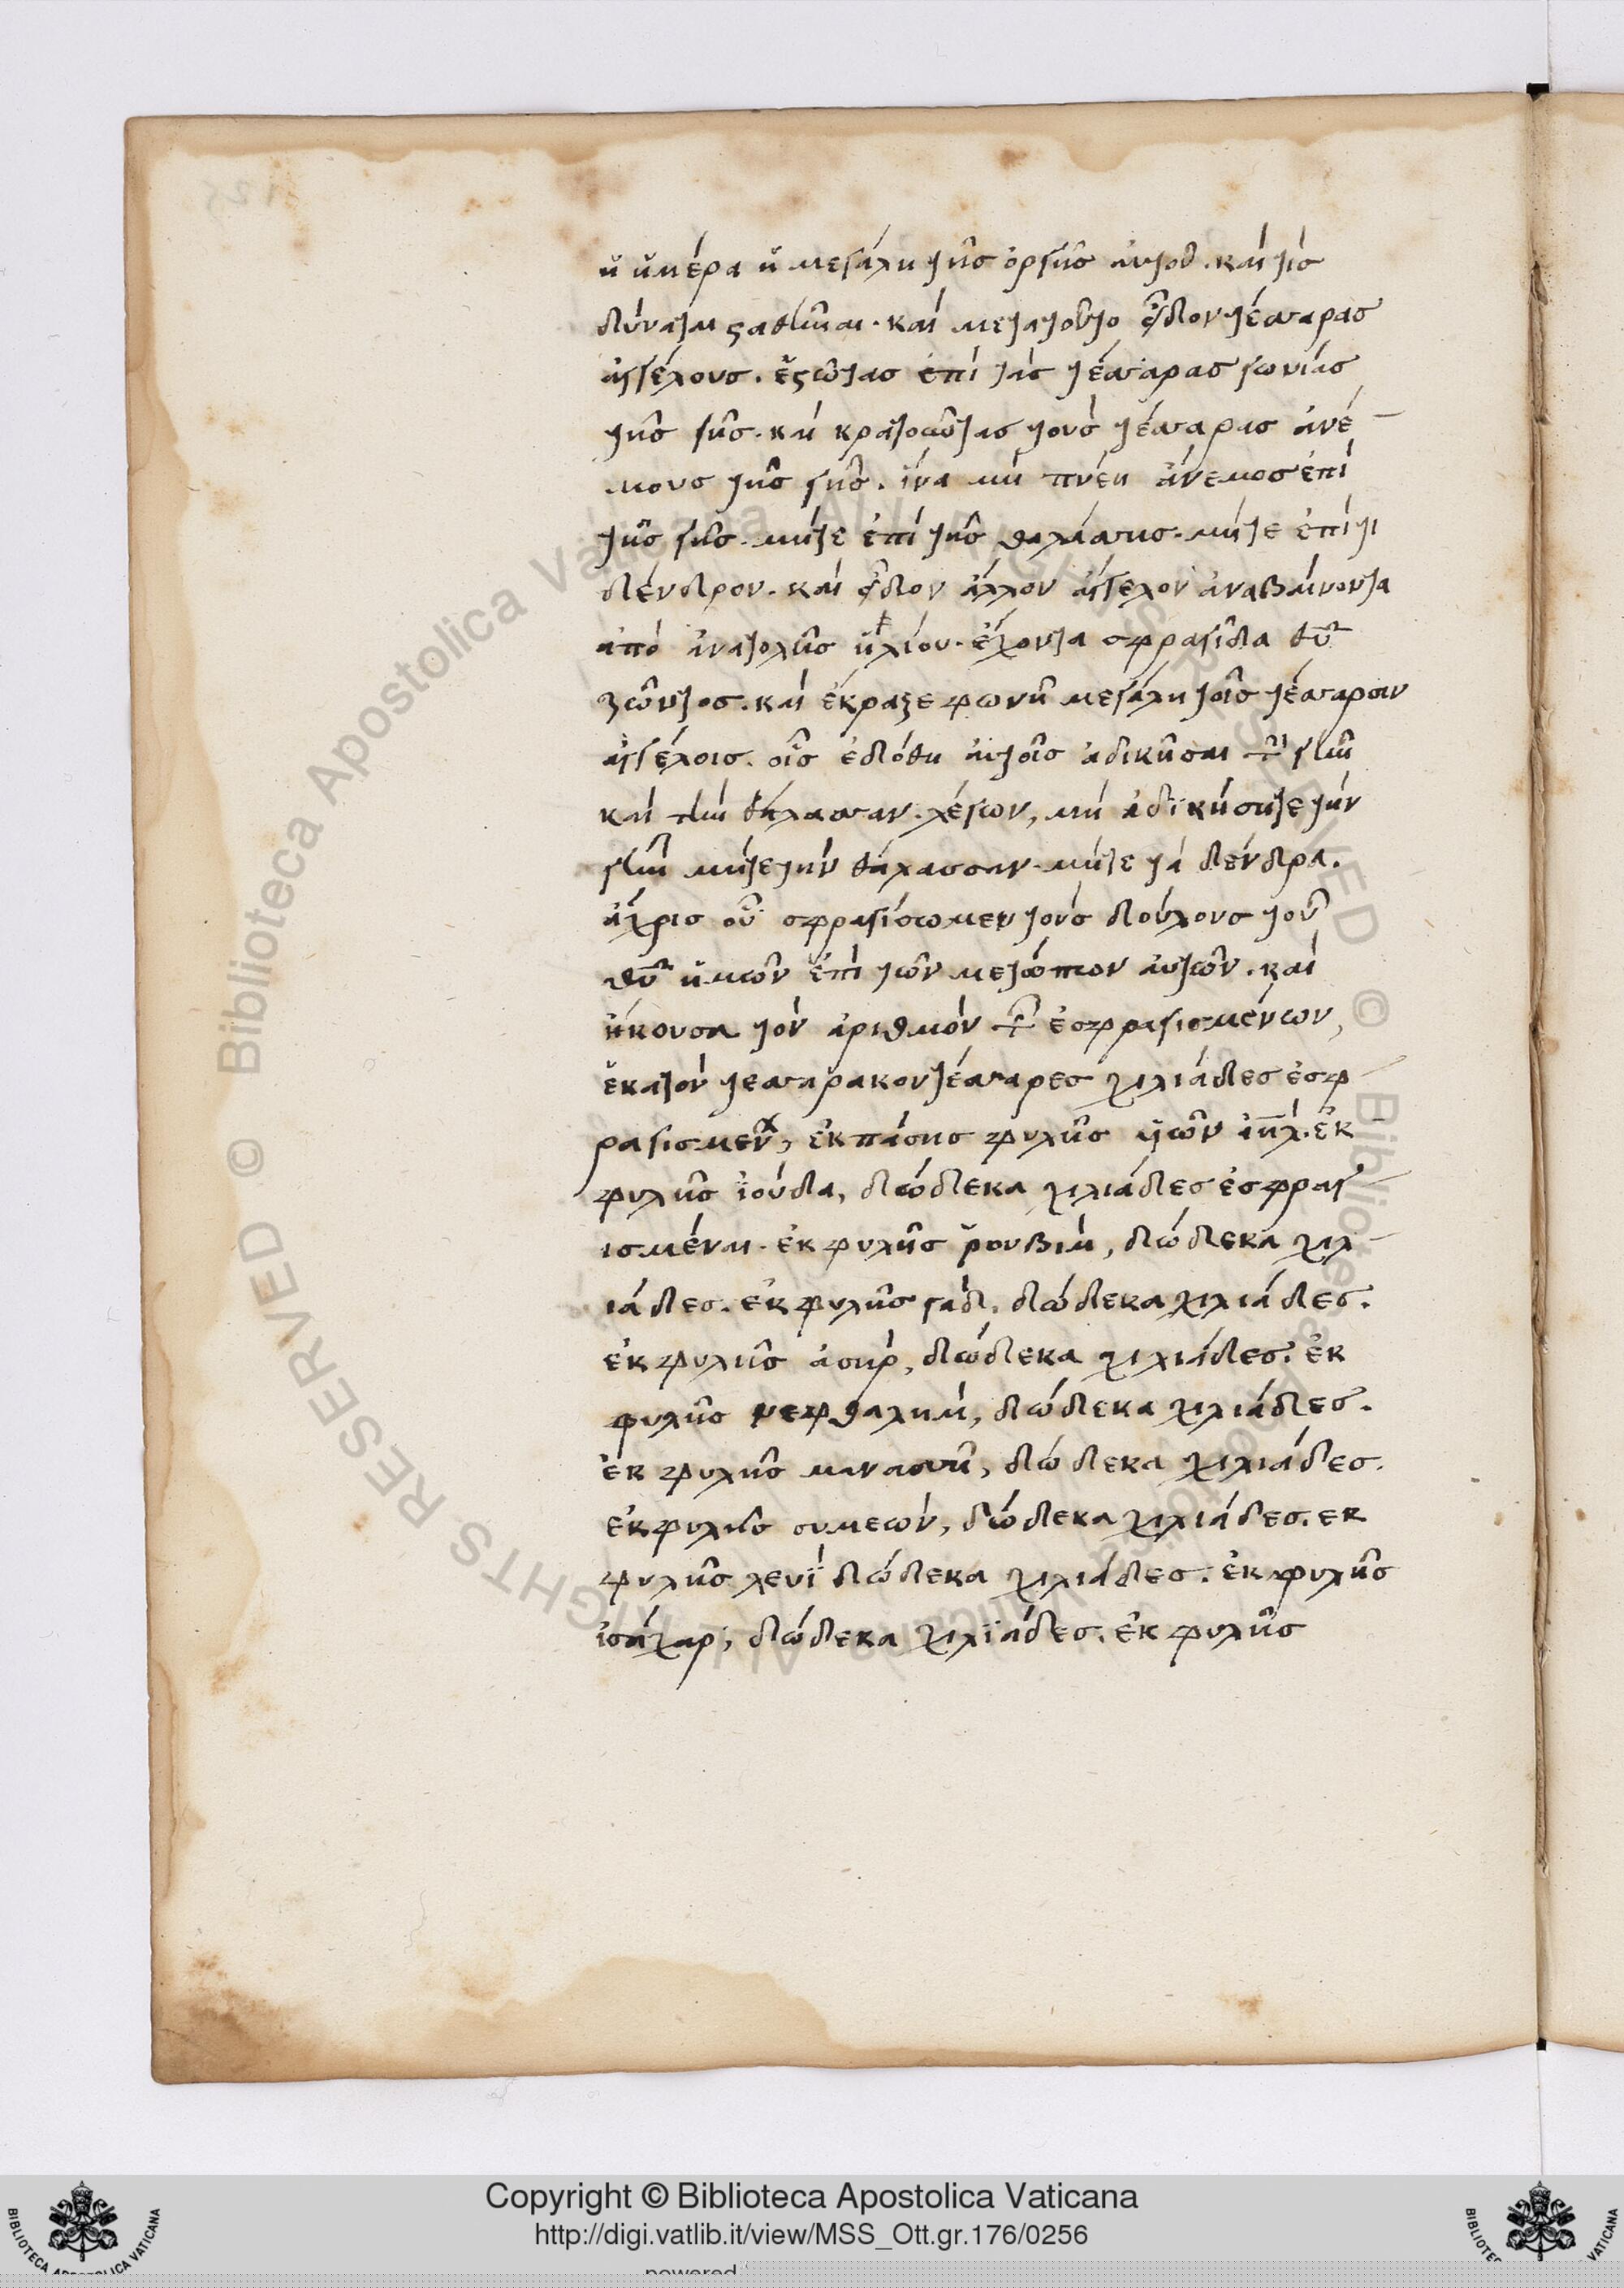 ἡ ἡμέρα ἡ μεγάλη τῆς ὀργῆς αὐτοῦ. καὶ τίς
δύναται σταθῆναι. καὶ μετατοῦτο εἶδον τέσσαρας
ἀγγέλους. ἑστῶτας ἐπὶ τὰς τέσσαρας γωνίας
τῆς γῆς. καὶ κρατοῦντας τοὺς τέσσαρας ἀνέ
μους τῆς γῆς. ἵνα μὴ πνέη ἄνεμος ἐπὶ
τῆς γῆς. μήτε ἐπὶ τῆς θαλάσσης. μήτε ἐπί τι
δένδρον. καὶ εἶδον ἄλλον ἄγγελον ἀναβαίνοντα
ἀπὸ ἀνατολῆς ἡλίου. ἔχοντα σφραγῖδα θῦ
ζῶντος. καὶ ἔκραξε φωνῆ μεγάλη τοῖς τέσσαρσιν
ἀγγέλοις. οἷς ἐδόθη αὐτοῖς ἀδικῆσαι τὴν γῆν
καὶ τὴν θάλασσαν. λέγων, μὴ ἀδϊκήσητε τὴν
γῆν μήτε τὴν θάλασσαν. μήτε τὰ δένδρα.
ἄχρις οὗ σφραγίσωμεν τοὺς δούλους τοῦ
θῦ ἡμῶν ἐπὶ τῶν μετώπων αὐτῶν. καὶ
ἤκουσα τὸν ἀριθμὸν τῶν ἐσφραγισμένων,
ἑκατὸν τεσσαρακοντέσσαρες χιλιάδες ἐσφ
ραγισμένοι, ἐκ πάσης φυλῆς ϋἱῶν ἰηλ. ἐκ
φυλῆς ϊούδα, δώδεκα χιλιάδες ἐσφραγ
ισμέναι. ἐκ φυλῆς ῥουβὶμ, δώδεκα χιλ
ιάδες. ἐκ φυλῆς γὰδ, δώδεκα χιλιάδες.
ἐκ φυλῆς ἀσὴρ, δώδεκα χιλιάδες. ἐκ
φυλῆς νεφθαλημ, δώδεκα χιλιάδες.
ἐκ φυλῆς μανασσῆ, δώδεκα χιλιάδες.
ἐκ φυλῆς συμεών, δώδεκα χιλιάδες. ἐκ
φυλῆς λευῒ δώδεκα χιλιάδες. ἐκ φυλῆς
ἰσάχαρ, δώδεκα χιλϊάδες. ἐκ φυλῆς
Copyright © Biblioteca Apostolica Vaticana
http://digi.vatlib.it/view/MSS_Ott.gr.176/0256